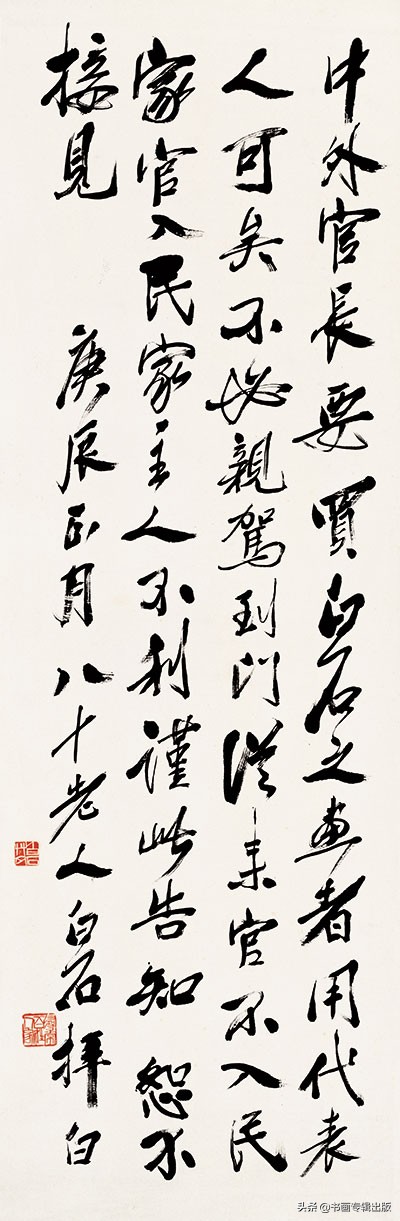 中外官長要買白石之画者用代表
人可矣不必親駕到門從来官不入民
家官入民家主人不利謹此告知恕不
接見
庚辰正月八十老人白石拜白
头条@书画专辑出版